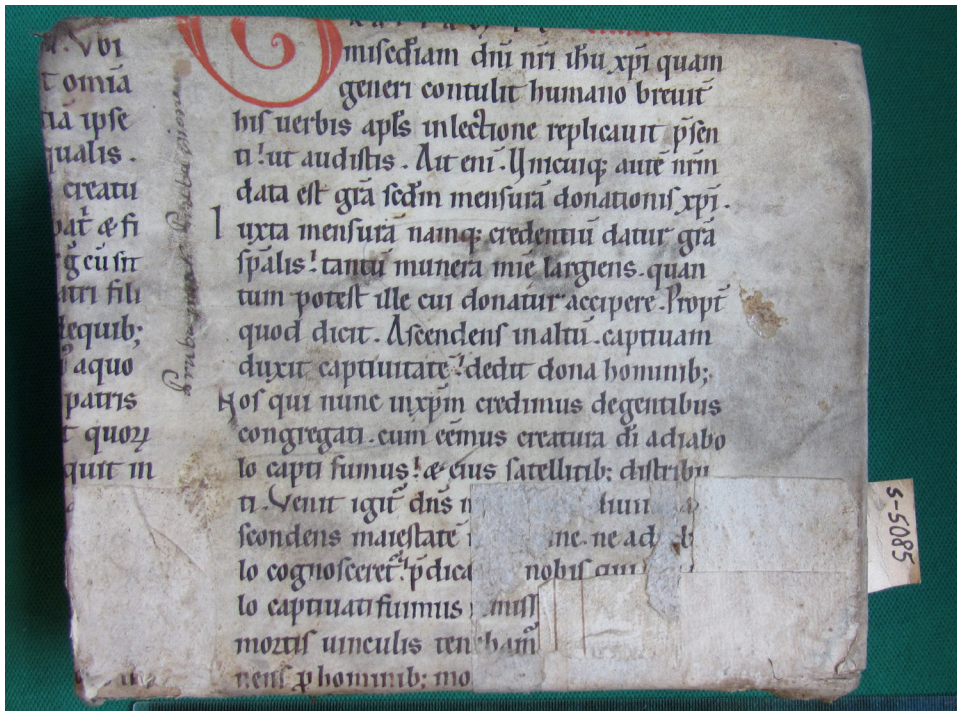 ubi
omīa
tiā ipse
qualis .
creatu
pat̄ & fi
ḡ cū sit
atri fili
dequib;
aquo
patris
t quoꝝ
quit in
misediam dn̄i nr̄i ihu xp̄i quam
generi contulit humano breuit̄
his uerbis apl̄s inlectione replicauit p̄sen
ti! ut audistis . Ait eni . Unicuiq; autē nrm̄
data est gr̄a scd̄m mensurā donationis xp̄i .
Iuxta mensurā namq; credentiū datur gr̄a
sp̄alis! tantū munera mie largiens . quan
tum potest ille cui donatur accipere . Propt̄
quod dicit . Ascendens inaltū . captiuam
duxit captiuitatē! dedit dona hominib;
Nos qui nunc inxp̄m credimus degentibus
congregati . cum eēmus creatura dī adiabo
lo capti fumus! & eius satellitib; distribu
ti . Venit igit̄ dn̄s
scondens maiestatē ne ad b
lo cognosceret! p̄dica nobis qui
lo captiuati fuimus
mortis uinculis tenebam̄
nens ꝑ hominib; mo
S-5085